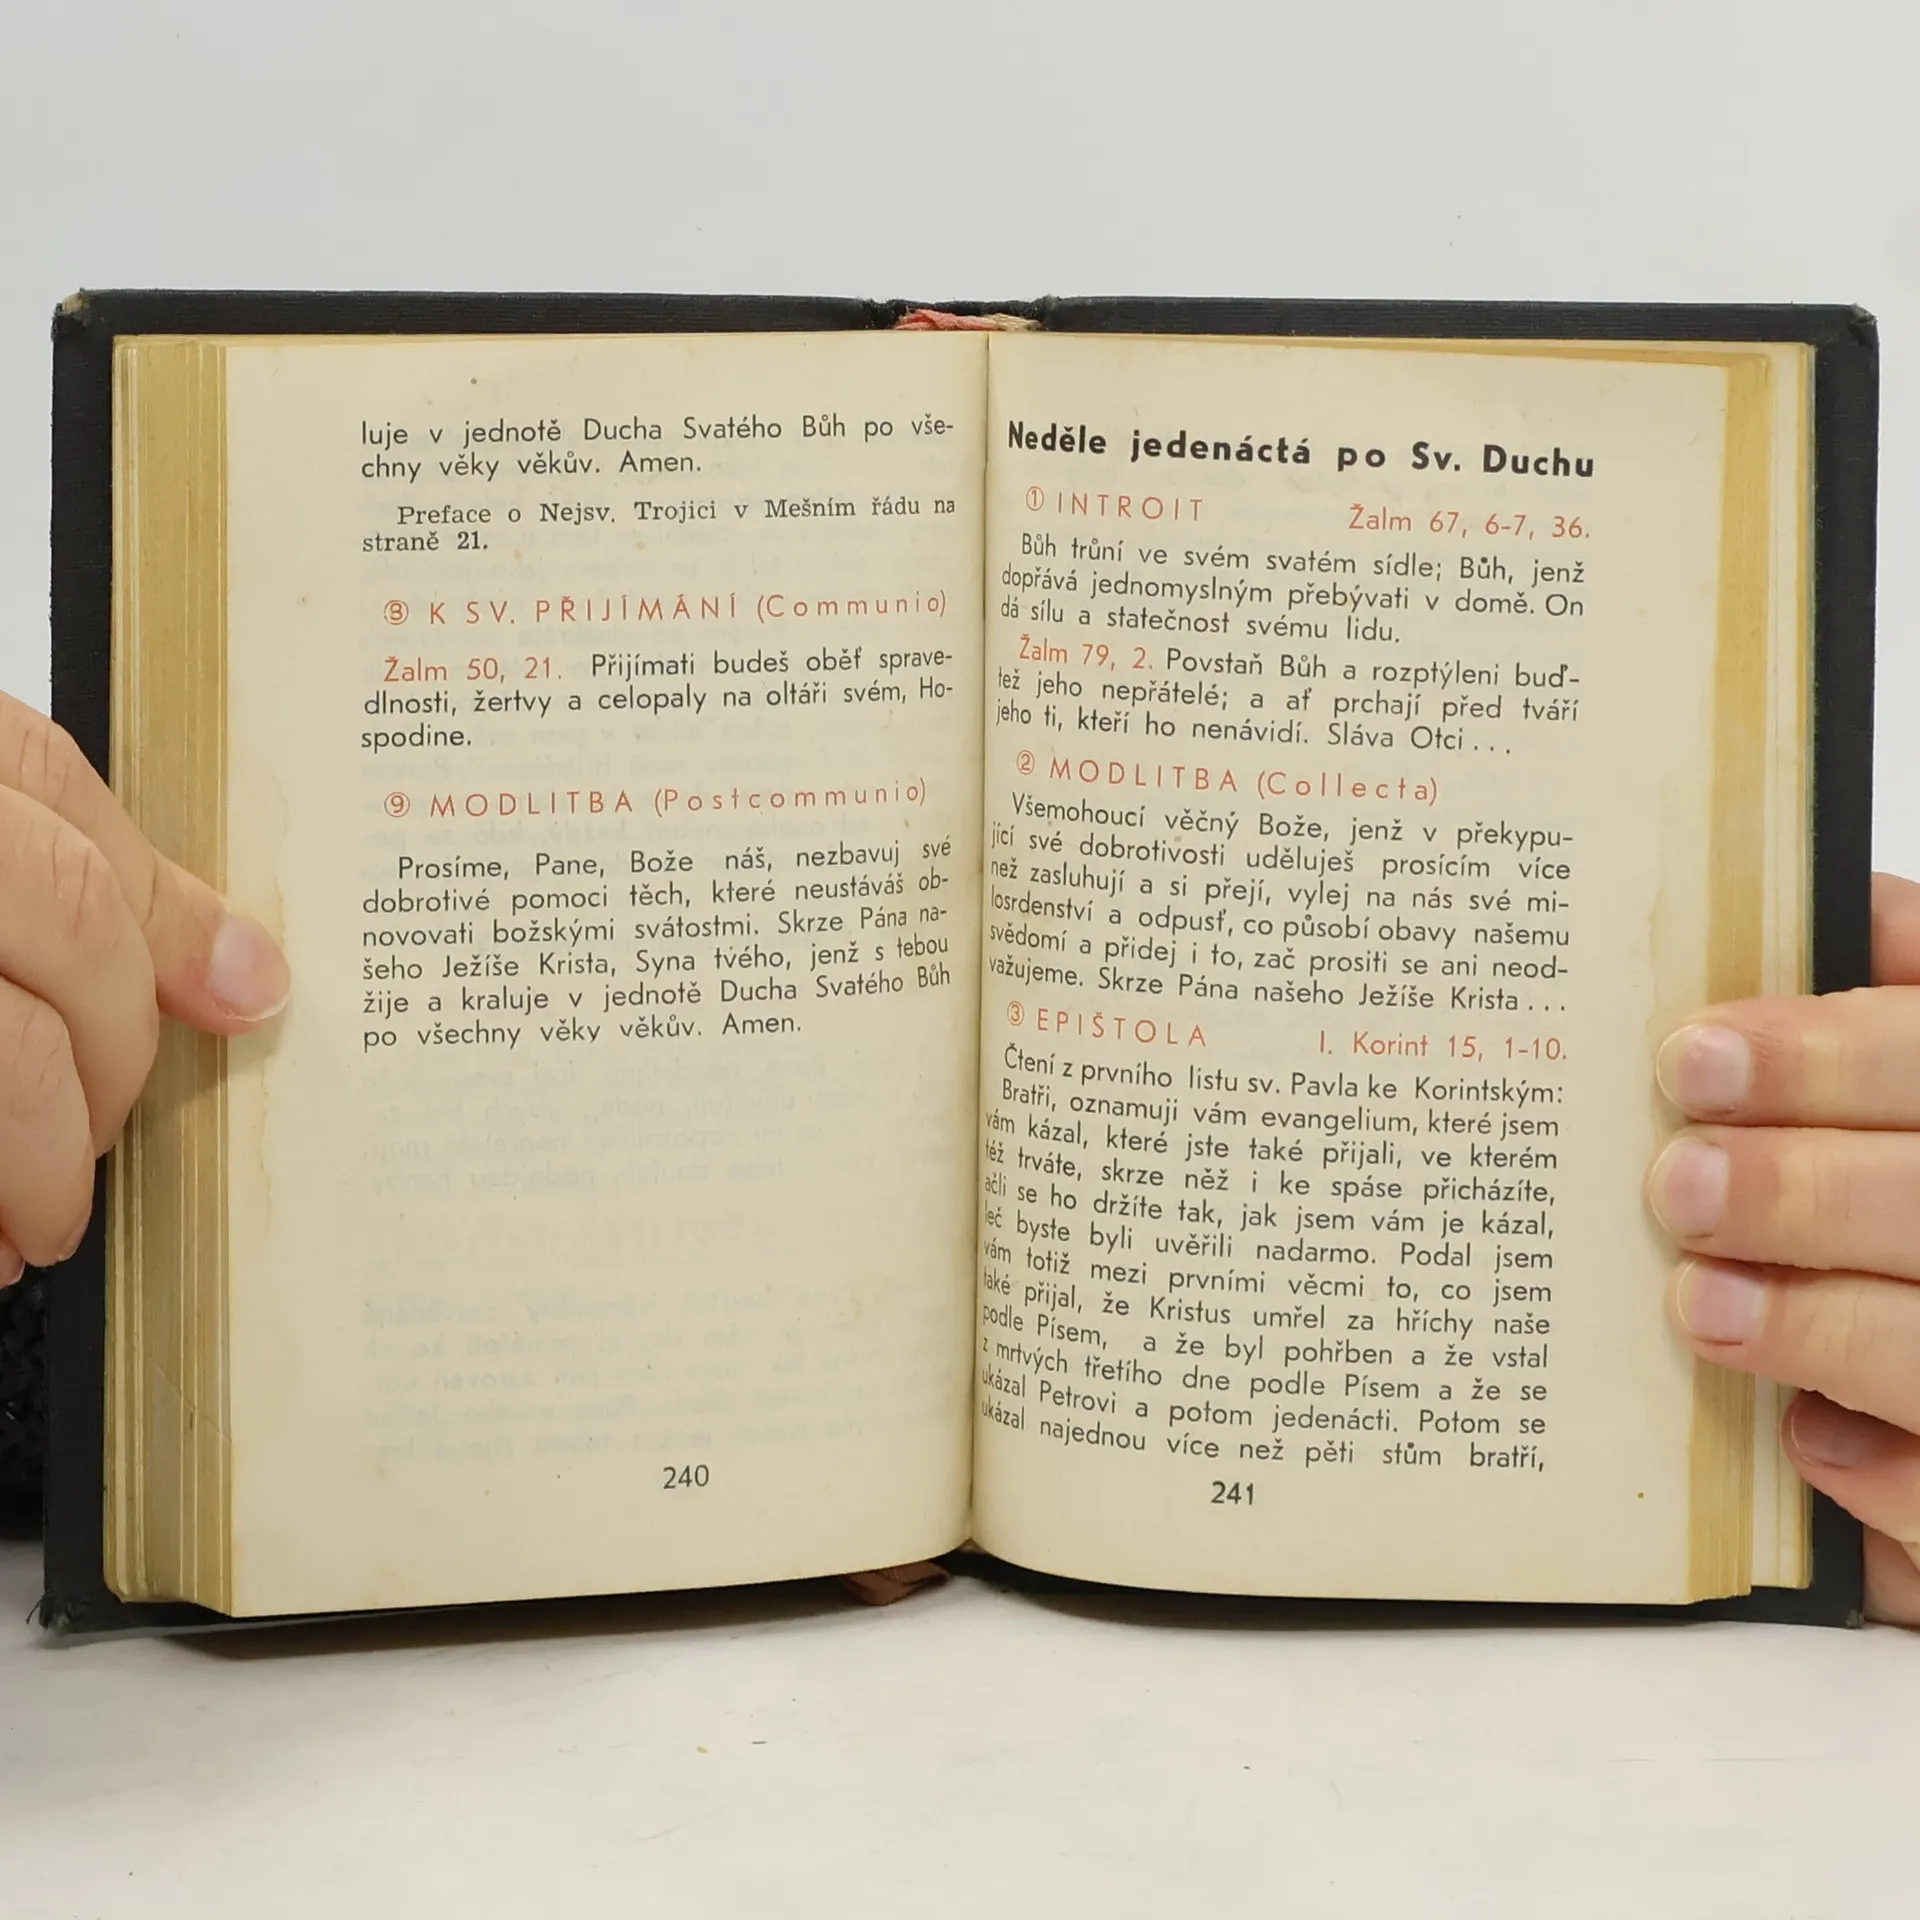 luje v jednotě Ducha Svatého Bůh po vše-
chny věky věkův. Amen.
Preface o Nejsv. Trojici v Mešním řádu na
straně 21.
⑧ K SV. PŘIJÍMÁNÍ (Communio)
Žalm 50, 21. Přijímati budeš oběť sprave-
dlnosti, žertvy a celopaly na oltáři svém, Ho-
spodine.
⑨ MODLITBA (Postcommunio)
Prosíme, Pane, Bože náš, nezbavuj své
dobrotivé pomoci těch, které neustáváš ob-
novovati božskými svátostmi. Skrze Pána na-
šeho Ježíše Krista, Syna tvého, jenž s tebou
žije a kraluje v jednotě Ducha Svatého Bůh
po všechny věky věkův. Amen.
240
Neděle jedenáctá po Sv. Duchu
① INTROIT Žalm 67, 6-7, 36.
Bůh trůní ve svém svatém sídle; Bůh, jenž
dopřává jednomyslným přebývati v domě. On
dá sílu a statečnost svému lidu.
Žalm 79, 2. Povstaň Bůh a rozptýleni buď-
tež jeho nepřátelé; a ať prchají před tváří
jeho ti, kteří ho nenávidí. Sláva Otci...
② MODLITBA (Collecta)
Všemohoucí věčný Bože, jenž v překypu-
jící své dobrotivosti uděluješ prosícím více
než zasluhují a si přejí, vylej na nás své mi-
losrdenství a odpusť, co působí obavy našemu
svědomí a přidej i to, zač prositi se ani neod-
važujeme. Skrze Pána našeho Ježíše Krista...
③ EPIŠTOLA I. Korint 15, 1-10.
Čtení z prvního listu sv. Pavla ke Korintským:
Bratři, oznamuji vám evangelium, které jsem
vám kázal, které jste také přijali, ve kterém
též trváte, skrze něž i ke spáse přicházíte,
ačli se ho držíte tak, jak jsem vám je kázal,
leč byste byli uvěřili nadarmo. Podal jsem
vám totiž mezi prvními věcmi to, co jsem
také přijal, že Kristus umřel za hříchy naše
podle Písem, a že byl pohřben a že vstal
z mrtvých třetího dne podle Písem a že se
ukázal Petrovi a potom jedenácti. Potom se
ukázal najednou více než pěti stům bratří,
241